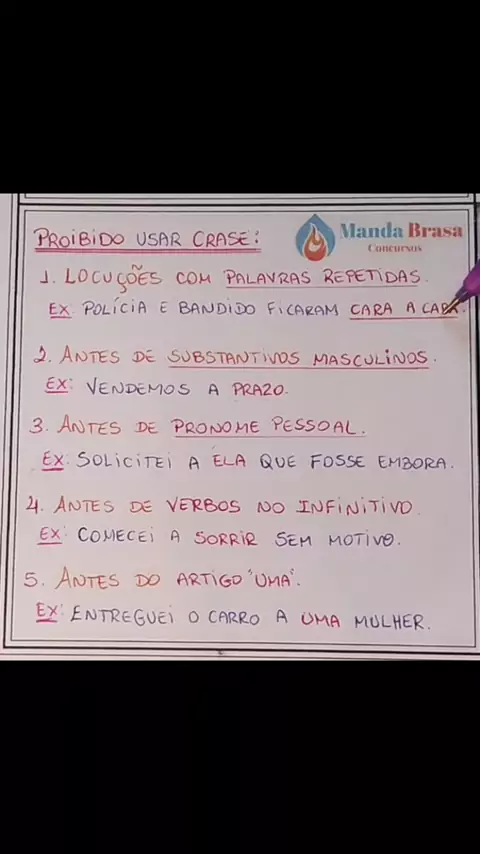 PROIBIDO USAR CRASE:
Manda Brasa
Concursos
1. LOCUÇÕES COM PALAVRAS REPETIDAS.
EX: POLÍCIA E BANDIDO FICARAM CARA A CARA.
2. ANTES DE SUBSTANTIVOS MASCULINOS.
EX: VENDEMOS A PRAZO.
3. ANTES DE PRONOME PESSOAL.
EX: SOLICITEI A ELA QUE FOSSE EMBORA.
4. ANTES DE VERBOS NO INFINITIVO.
EX: COMECEI A SORRIR SEM MOTIVO.
5. ANTES DO ARTIGO "UMA".
EX: ENTREGUEI O CARRO A UMA MULHER.